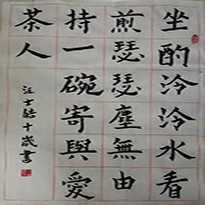 坐酌泠泠水看
煎瑟瑟塵無由
持一碗寄與愛
茶人
汪士酷十歲書